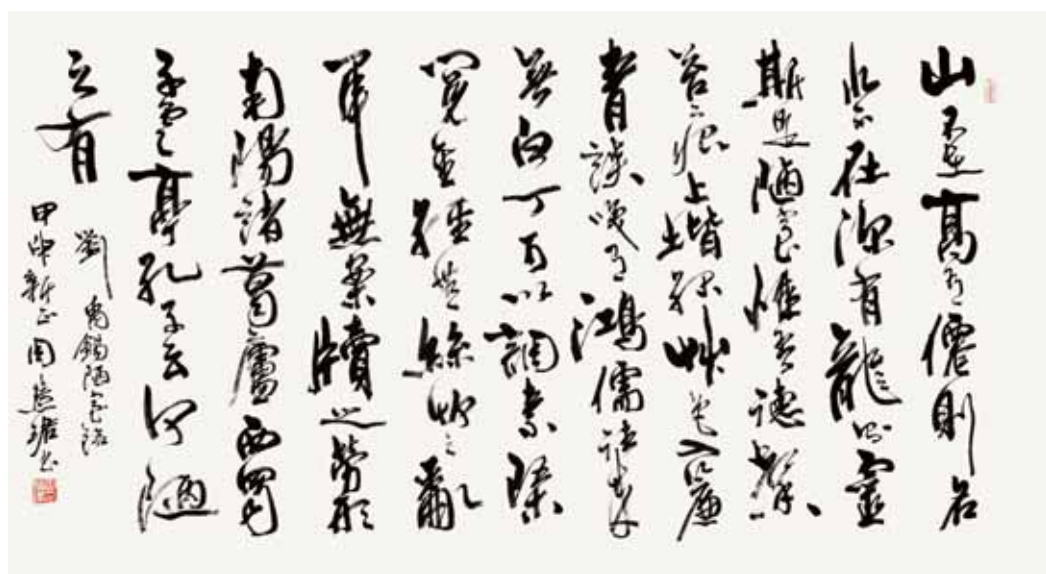 山不在高有僊則名
水不在深有龍則靈
斯是陋室惟吾德馨
苔痕上堦綠艸色入簾
青談笑有鴻儒往來
無白丁可以調素琴
閱金經無絲竹之亂
耳無案牘之勞形
南陽諸葛廬西蜀
子雲亭孔子云何陋
之有
劉禹錫陋室銘
甲申新正周慧珺書